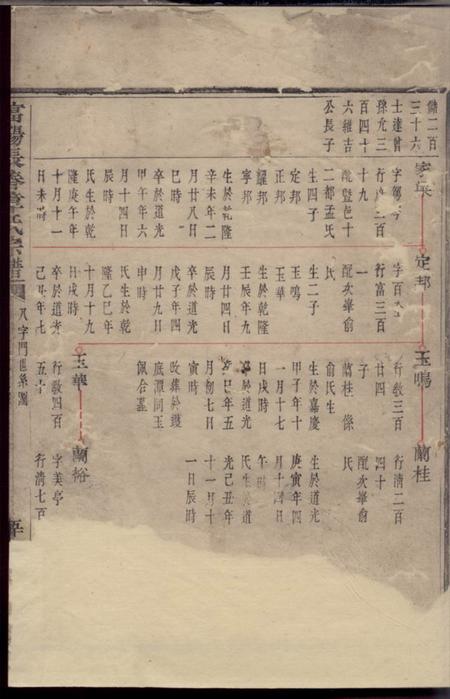 儲二百
三十六
士達曾
孫允三
百四十
六維吉
公長子
十九
配暨邑十
二都孟氏
生四子
定邦
正邦
耀邦
寧邦
生於乾隆
辛未年二
月廿八日
巳時
卒於道光
甲午年六
月十四日
辰時
氏生於乾
隆庚午年
十月十一
日未時
定邦
行富三百
一
配次畢俞
氏
生二子
玉鳴
玉華
生於乾隆
壬辰年九
月廿四日
辰時
卒於道光
戊子年四
月廿九日
申時
氏生於乾
隆乙巳年
十月十九
日戌時
卒於道光
玉鳴
行敎三百
廿四
子
蘭桂
俞氏生
生於嘉慶
甲子年十
一月十七
日戌時
於道光
癸巳年五
月初七日
寅時
改葬於護
底潭同玉
佩合墓
蘭桂
行淸二百
四十
配次畢俞
氏
生於道光
庚寅年四
月十四日
午時
氏生於道
光己丑年
十一月十
一日辰時
玉華
行敎四百
五十
蘭裕
字美亭
行淸七百
章氏宗譜
八字門世系圖